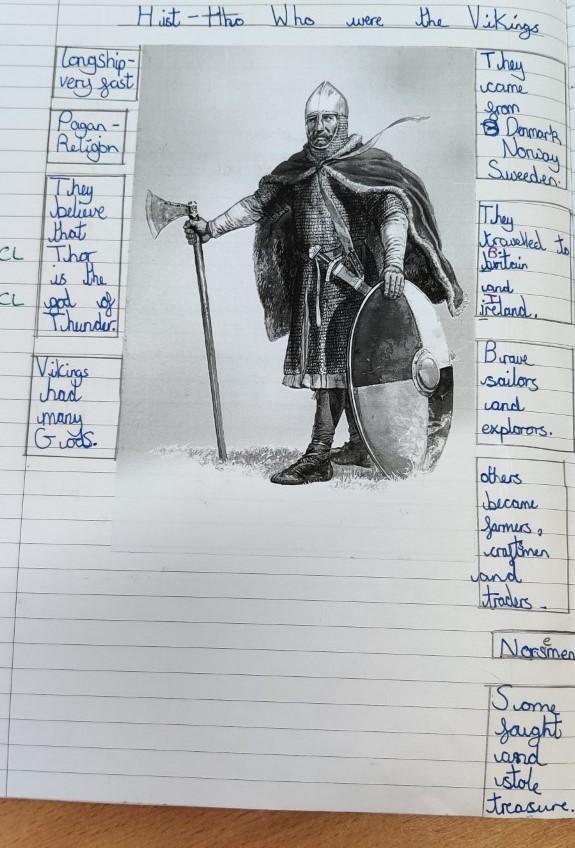 Hist - Who Who were the Vikings
Longship -
very fast
Pagan -
Religion
They
believe
that
CL
Thor
is the
CL
god of
Thunder.
Vikings
had
many
Gods.
They
came
from
Denmark
Norway
Sweeden.
They
travelled to
Britain
and
Ireland.
Brave
sailors
and
explorors.
others
became
farmers,
craftsmen
and
traders.
Norsemen
Some
faught
and
stole
treasure.